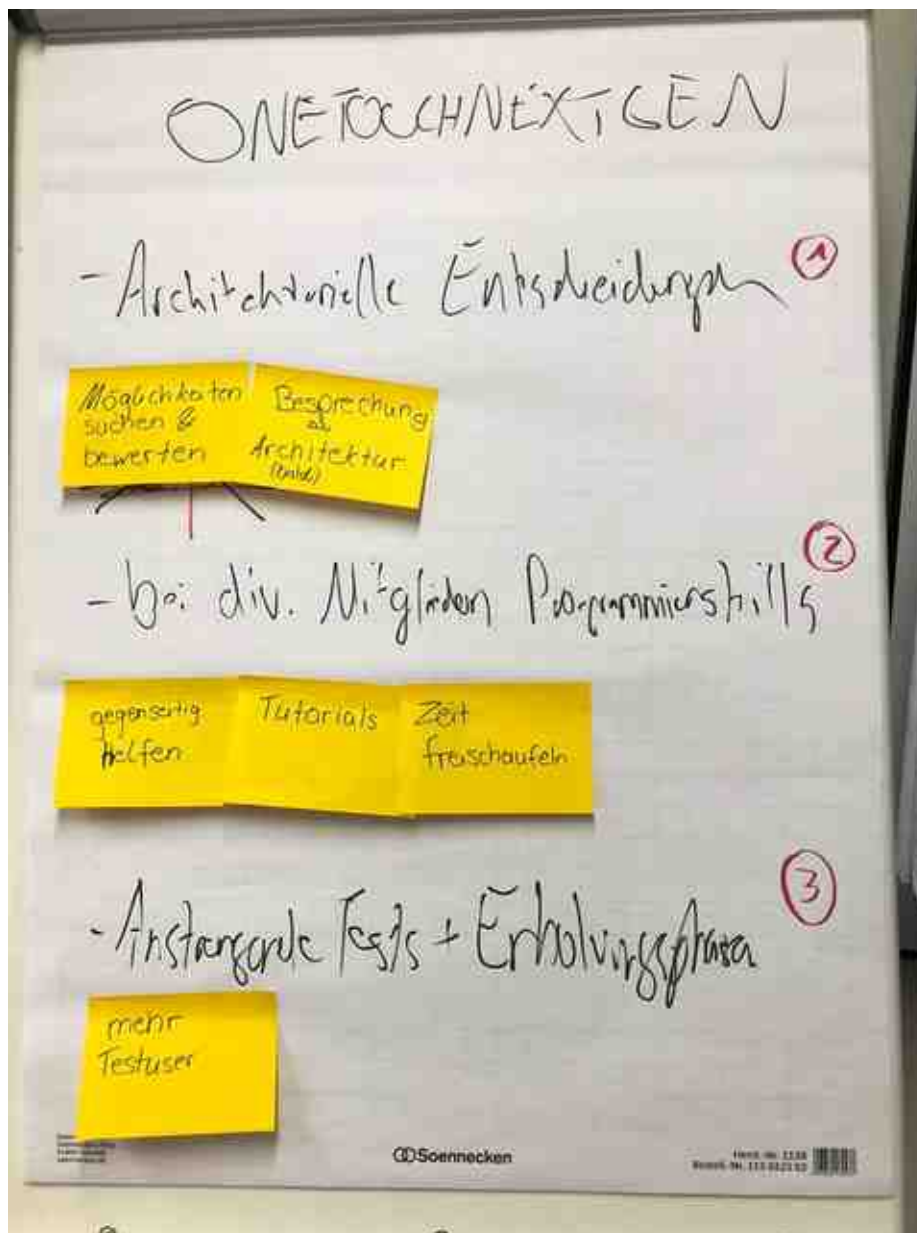 ONETOUCHNEXTGEN
- Architektonielle Entscheidungen ①
Möglichkeiten
suchen &
bewerten
Besprechung
Architektur
- bei div. Mitgliedern Programmierskills ②
gegenseitig
helfen
Tutorials
Zeit
freischaufeln
- Anstrengende Tests + Erholungsphasen ③
mehr
Testuser
Soennecken